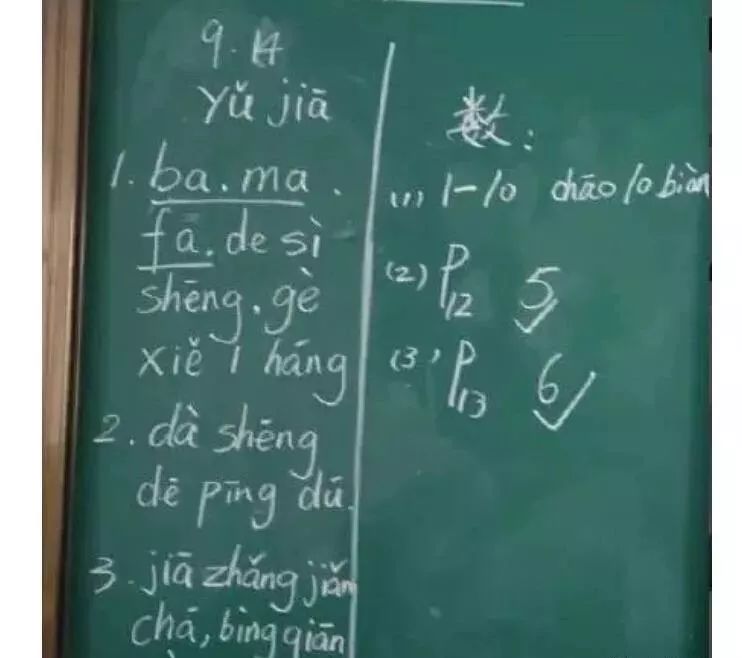 9.14
Yǔ jiā
1. ba. ma.
fa. de sì
shēng. gè
xiě 1 háng
2. dà shēng
dē pīng dú.
3. jiā zhǎng jiǎn
chá, bìng qiān
数:
(1) 1-10 chāo 10 biàn
(2) P12 5
(3) P13 6